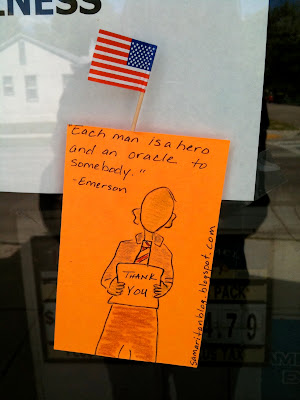 LNESS
"Each man is a hero
and an oracle to
somebody."
-Emerson
THANK
YOU
samaritanblog.blogspot.com
PACK
4.79
TAX